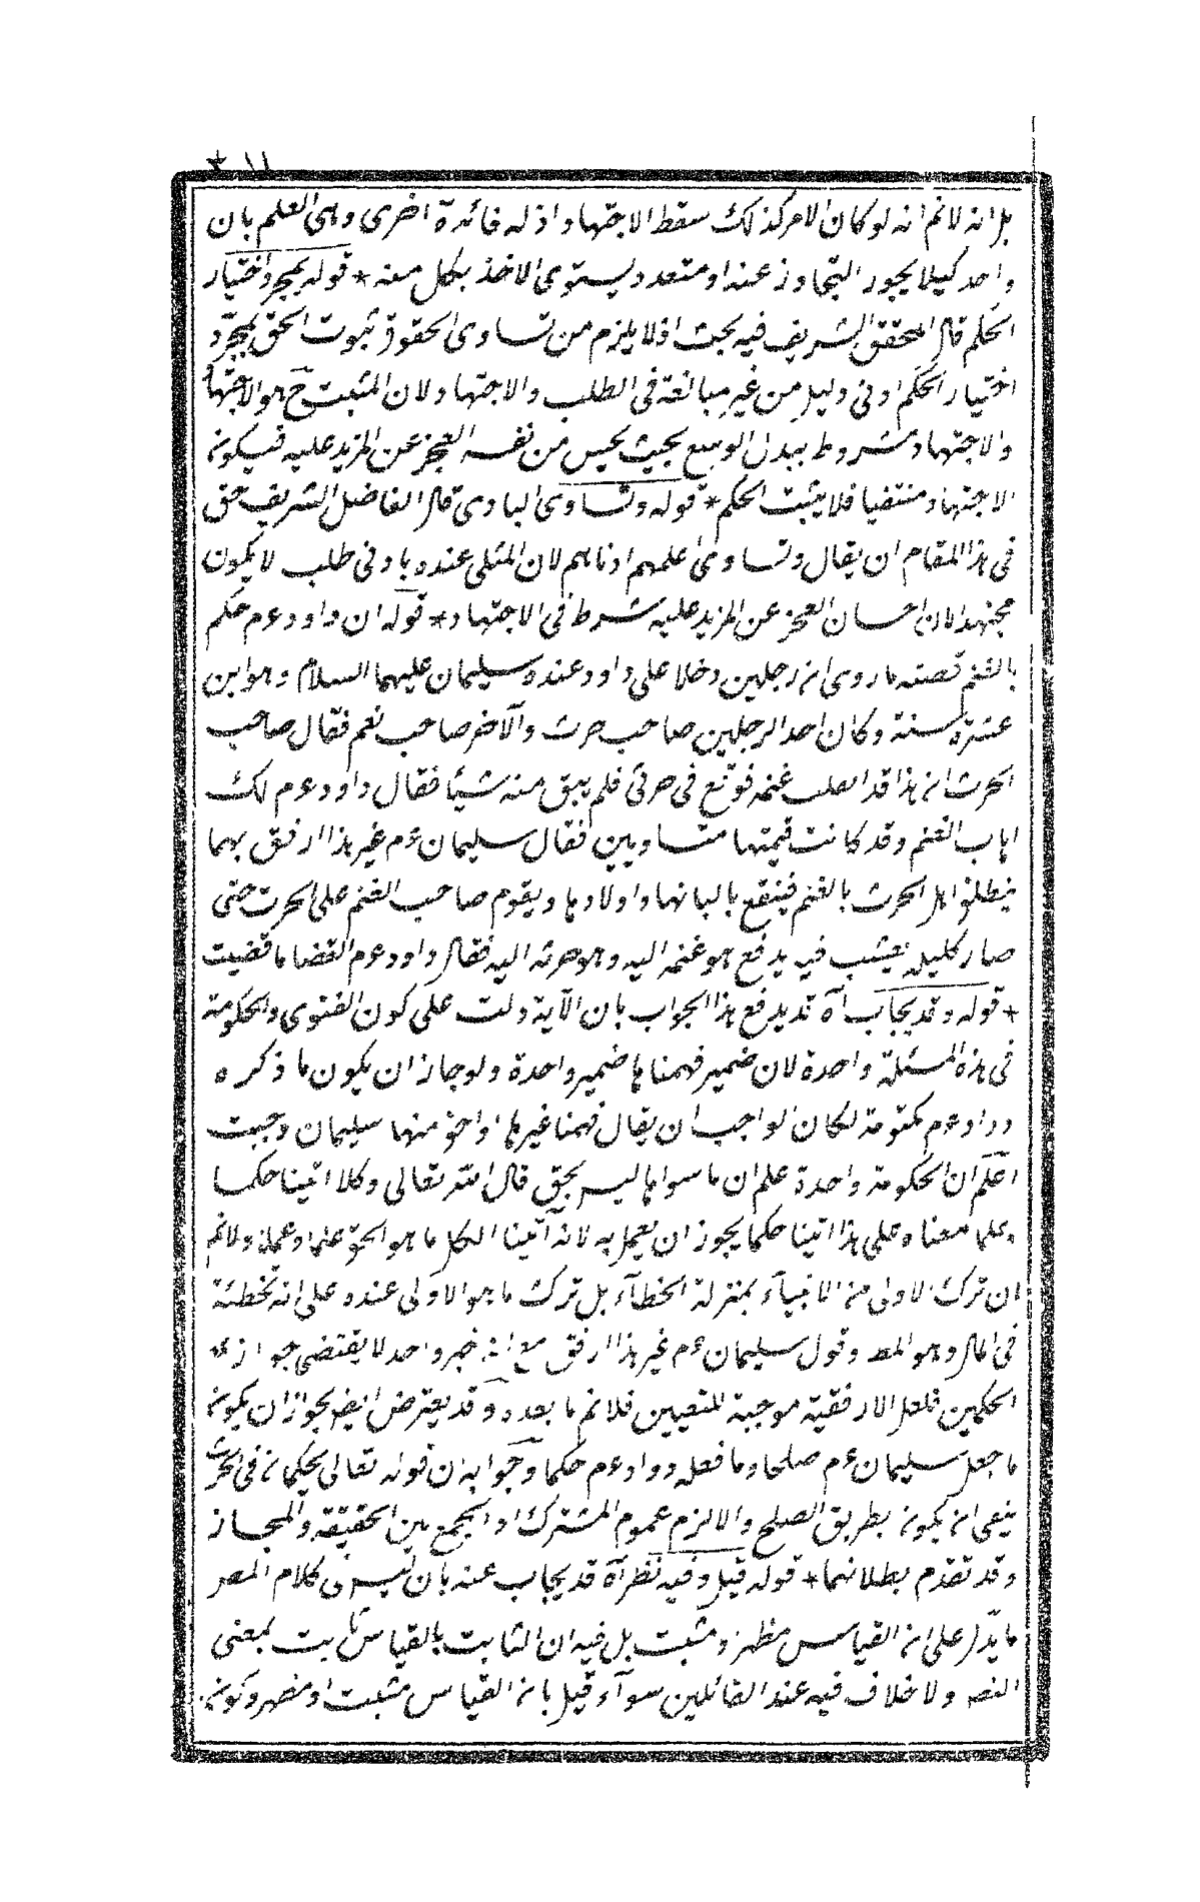 ٣١١
بل انه لا نم انه لو كان الامر كذلك سقط الاجتهاد اذ له فائدة اخرى وهى العلم بان
واحد كيلا يجوز التجاوز عنه او متعدد ويستوى الاخذ بكل منه * قوله بمجرد اختيار
الحكم قال المحقق الشريف فيه بحث اذ لا يلزم من تساوى الحقوق ثبوت الحق بمجرد
اختيار الحكم او فى دليل من غير مبالغة فى الطلب والاجتهاد لان المثبت ح هو الاجتهاد
والاجتهاد مشروط ببذل الوسع بحيث يحس من نفسه العجز عن المزيد عليه فيكون
الاجتهاد منتفيا فلا يثبت الحكم * قوله وتساوى البادى قال الفاضل الشريف حق
فى هذا المقام ان يقال وتساوى اعلمهم ادناهم لان المثلى عنده بادنى طلب لا يكون
مجتهدا لان احساس العجز عن المزيد عليه شرط فى الاجتهاد * قوله ان داود عم حكم
بالغنم قصته ما روى ان رجلين دخلا على داود عنده سليمان عليهما السلام وهو ابن
عشرة سنة وكان احد الرجلين صاحب حرث والآخر صاحب نعم فقال صاحب
الحرث ان هذا قد غنمه فوقع فى حرثى فلم يبق منه شيئا فقال داود عم لك
اياب الغنم وقد كانت قيمتهما متساويين فقال سليمان عم غير هذا ارفق بهما
ينطلق اهل الحرث بالغنم فينتفع بالبانها واولادها ويقوم صاحب الغنم على الحرث حتى
صار كليله فيه يدفع هو غنمه اليه وهو حرثه اليه فقال داود عم القضا ما قضيت
* قوله وقد يجاب آه قد يدفع هذا الجواب بان الآية دلت على كون الفتوى والحكومة
فى هذه المسئلة واحدة لان ضمير فهمنا ها ضمير واحدة ولو جاز ان يكون ما ذكره
داود عم حكومة لكان الواجب ان يقال فهمنا غيرها منهما سليمان وحيث
اعلم ان الحكومة واحدة علم ان ما سواها ليس بحق قال الله تعالى وكلا اتينا حكما
وعلما معناه على هذا اتينا حكما يجوز ان يعمل به لانه آتينا الكل ما هو الحق علما وعملا ولا نم
ان ترك الاولى من الانبيآء بمنزلة الخطآء بل ترك ما هو الاولى عنده على انه تخطئة
فى المال وهو المط وقول سليمان عم غير هذا ارفق مع انه خبر واحد لا يقتضى جواز
الحكمين فلعل الارفقية موجبة للتعيين فلا نم ما بعده وقد يعترض ايض بجواز ان يكون
ما جعل سليمان عم صلحا وما فعله داود عم حكما وجوابه ان قوله تعالى يحكمان فى الحرث
ينفى ان يكون بطريق الصلح والا لزم عموم المشترك او الجمع بين الحقيقة والمجاز
وقد تقدم بطلانهما * قوله قيل وفيه نظر آه قد يجاب عنه بان ليس فى كلام المصر
ما يدل على ان القياس مظهر ومثبت بل فيه ان الثابت بالقياس ثابت بمعنى
النص ولا خلاف فيه عند القائلين سوآء قيل بان القياس مثبت او مظهر وكون